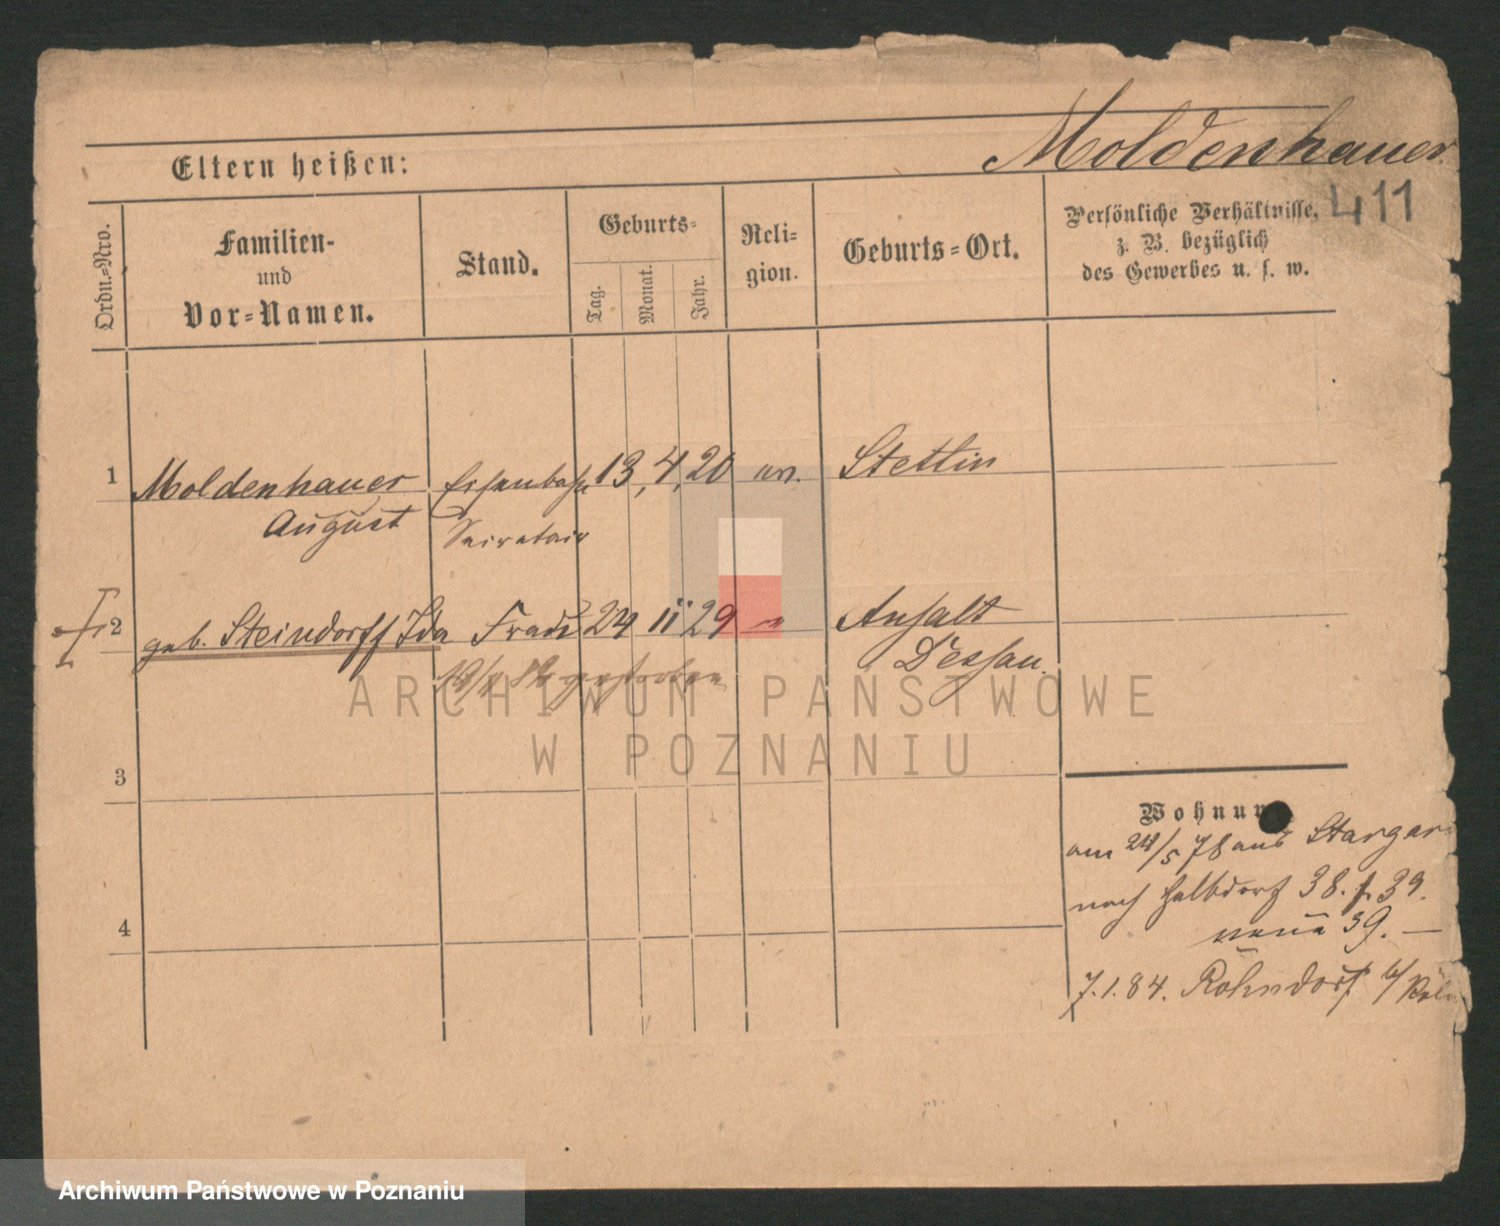 Moldenhauer
Eltern heißen:
411
Ordn.-Nro.
Familien-
und
Vor-Namen.
Stand.
Geburts-
Tag.
Monat.
Jahr.
Reli-
gion.
Geburts-Ort.
Persönliche Verhältnisse,
z. B. bezüglich
des Gewerbes u. s. w.
1 Moldenhauer Eisenbahn 13, 4, 20 ev. Stettin
August Secretair
2 geb. Steindorff Ida Frau 24 11 29 " Anhalt
Dessau.
gestorben
ARCHIWUM PAŃSTWOWE
W POZNANIU
3
Wohnun
am 24/5 78 aus Stargar
nach Halbdorf 38. f. 39.
neue 39. —
4
7.1.84. Rohndorf b/ Köln
Archiwum Państwowe w Poznaniu